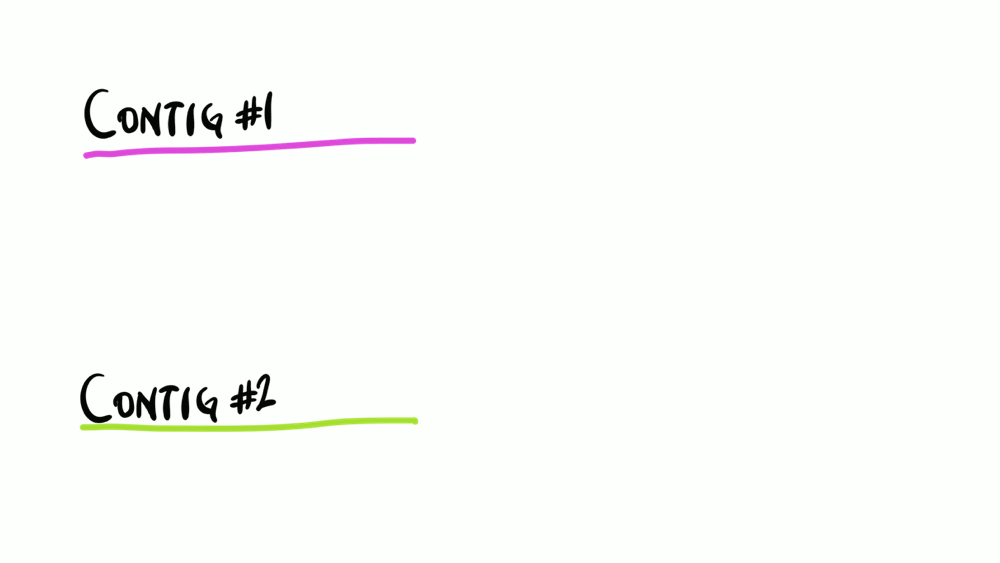 CONTIG #1
CONTIG #2